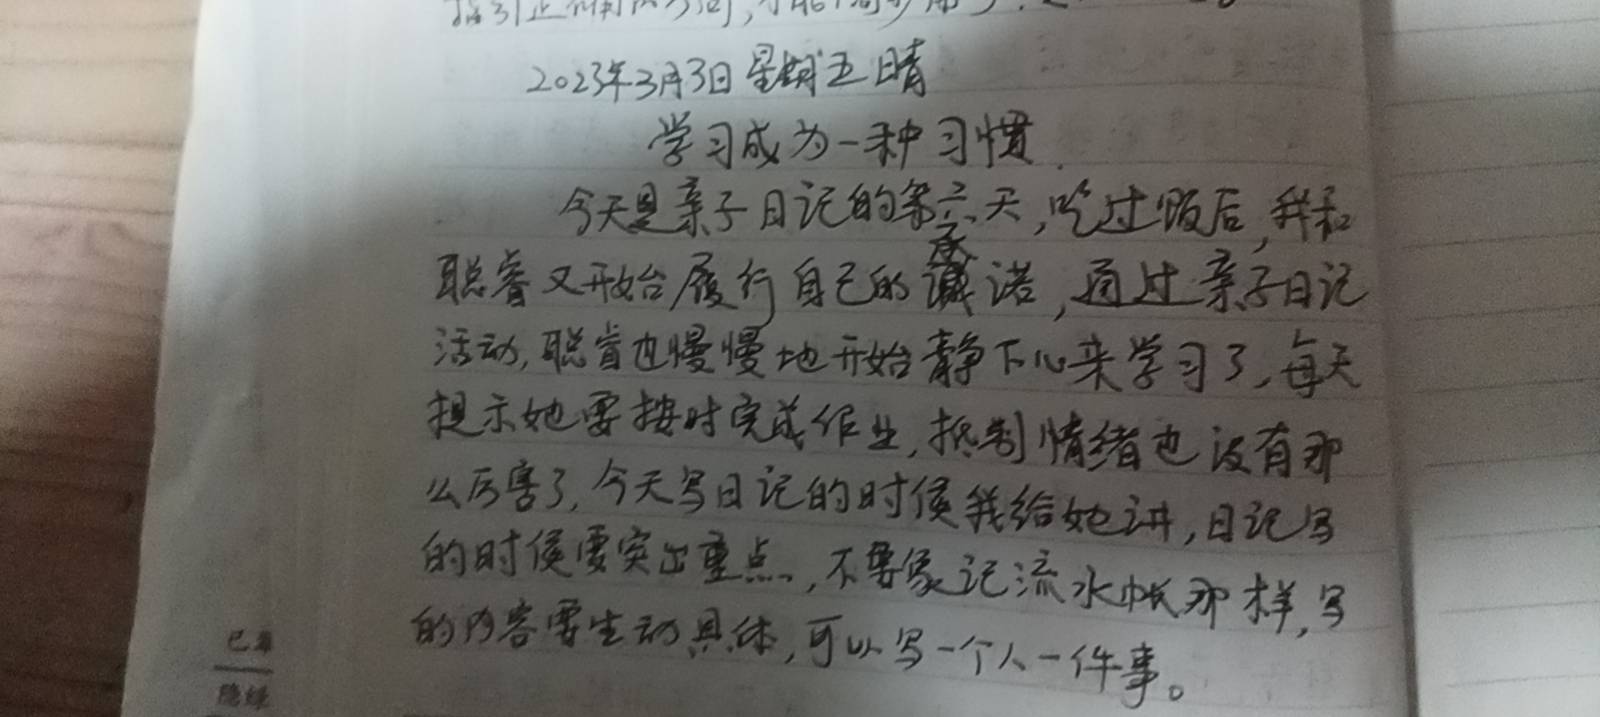 指引正确的方向,才能
2023年3月3日 星期五 晴
学习成为一种习惯
今天是亲子日记的第六天,吃过饭后,我和
聪睿又开始履行自己的承诺,通过亲子日记
活动,聪睿也慢慢地开始静下心来学习了,每天
提示她要按时完成作业,抵制情绪也没有那
么厉害了,今天写日记的时候我给她讲,日记写
的时候要突出重点,不要象记流水帐那样,写
的内容要生动具体,可以写一个人一件事。